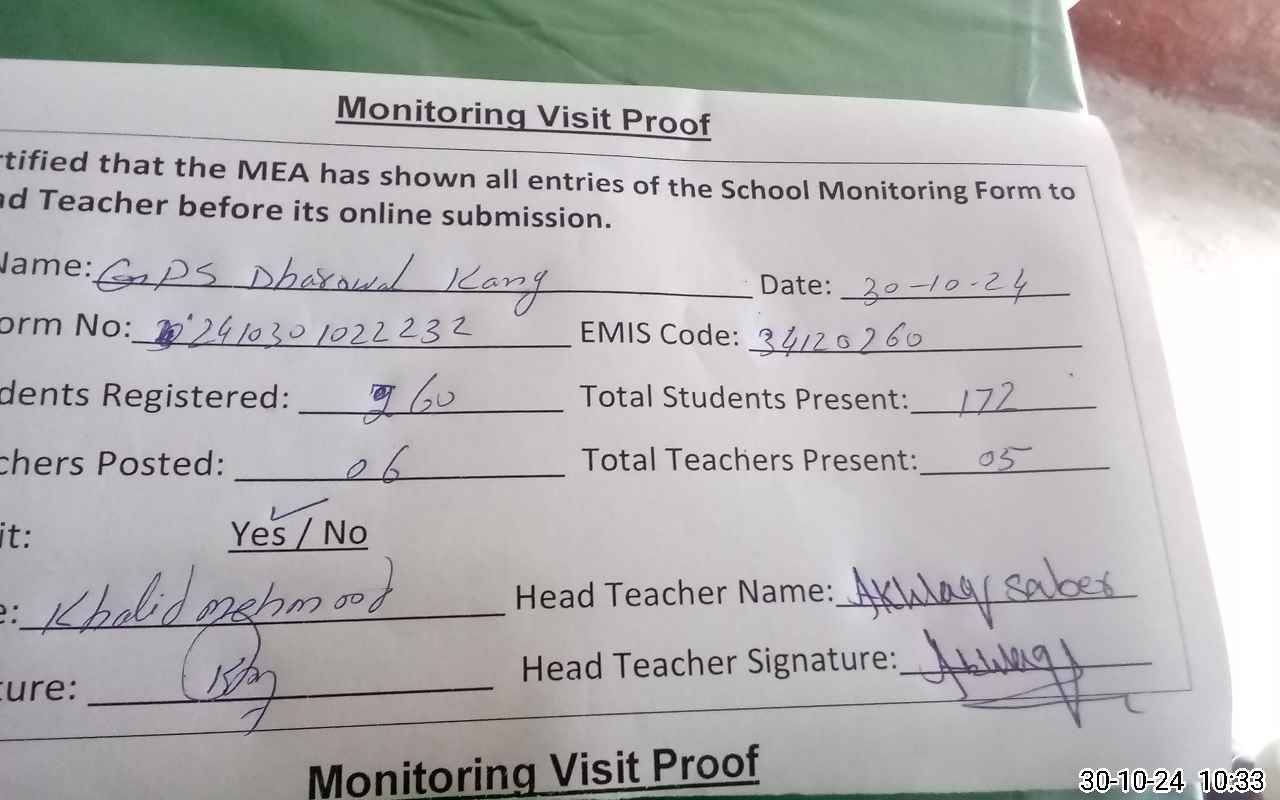 Monitoring Visit Proof
rtified that the MEA has shown all entries of the School Monitoring Form to
ad Teacher before its online submission.
Name: GPS Dharowal Kang Date: 30-10-24
orm No: 2410301022232 EMIS Code: 34120260
dents Registered: 260 Total Students Present: 172
chers Posted: 06 Total Teachers Present: 05
it: Yes / No
e: Khalid mehmood Head Teacher Name: Akhlaq Saber
ture: Head Teacher Signature:
Monitoring Visit Proof
30-10-24 10:33